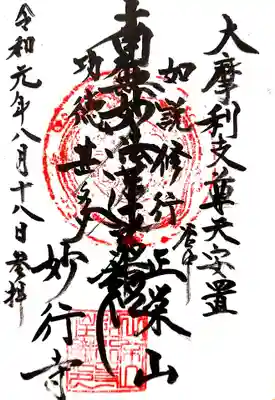 大摩利支尊天安置
如説修行
谷中
正栄山
南無妙法蓮華経
功徳甚多
妙行寺
令和元年八月十八日参拝